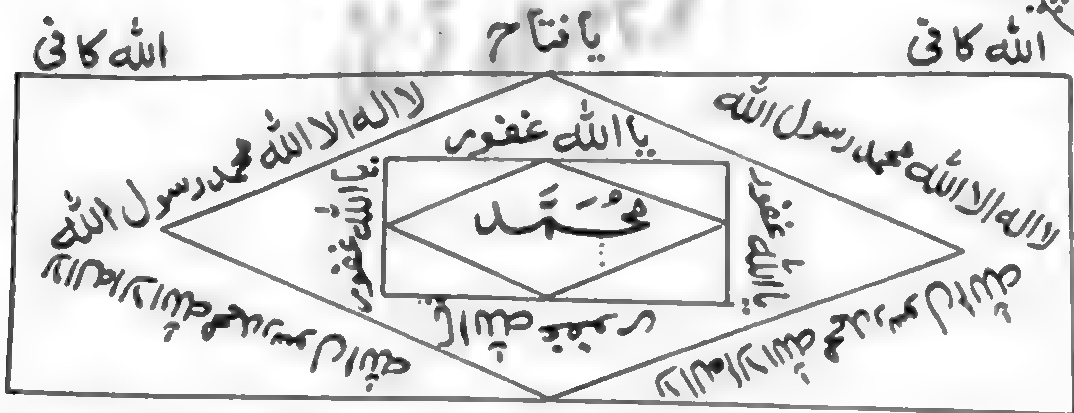 الله كافى
يا فتاح
الله كافى
لا اله الا الله محمد رسول الله
لا اله الا الله محمد رسول الله
يا الله غفور
يا الله غفور
مُحَمَّد
يا الله غفور
يا الله غفور
لا اله الا الله محمد رسول الله
لا اله الا الله محمد رسول الله